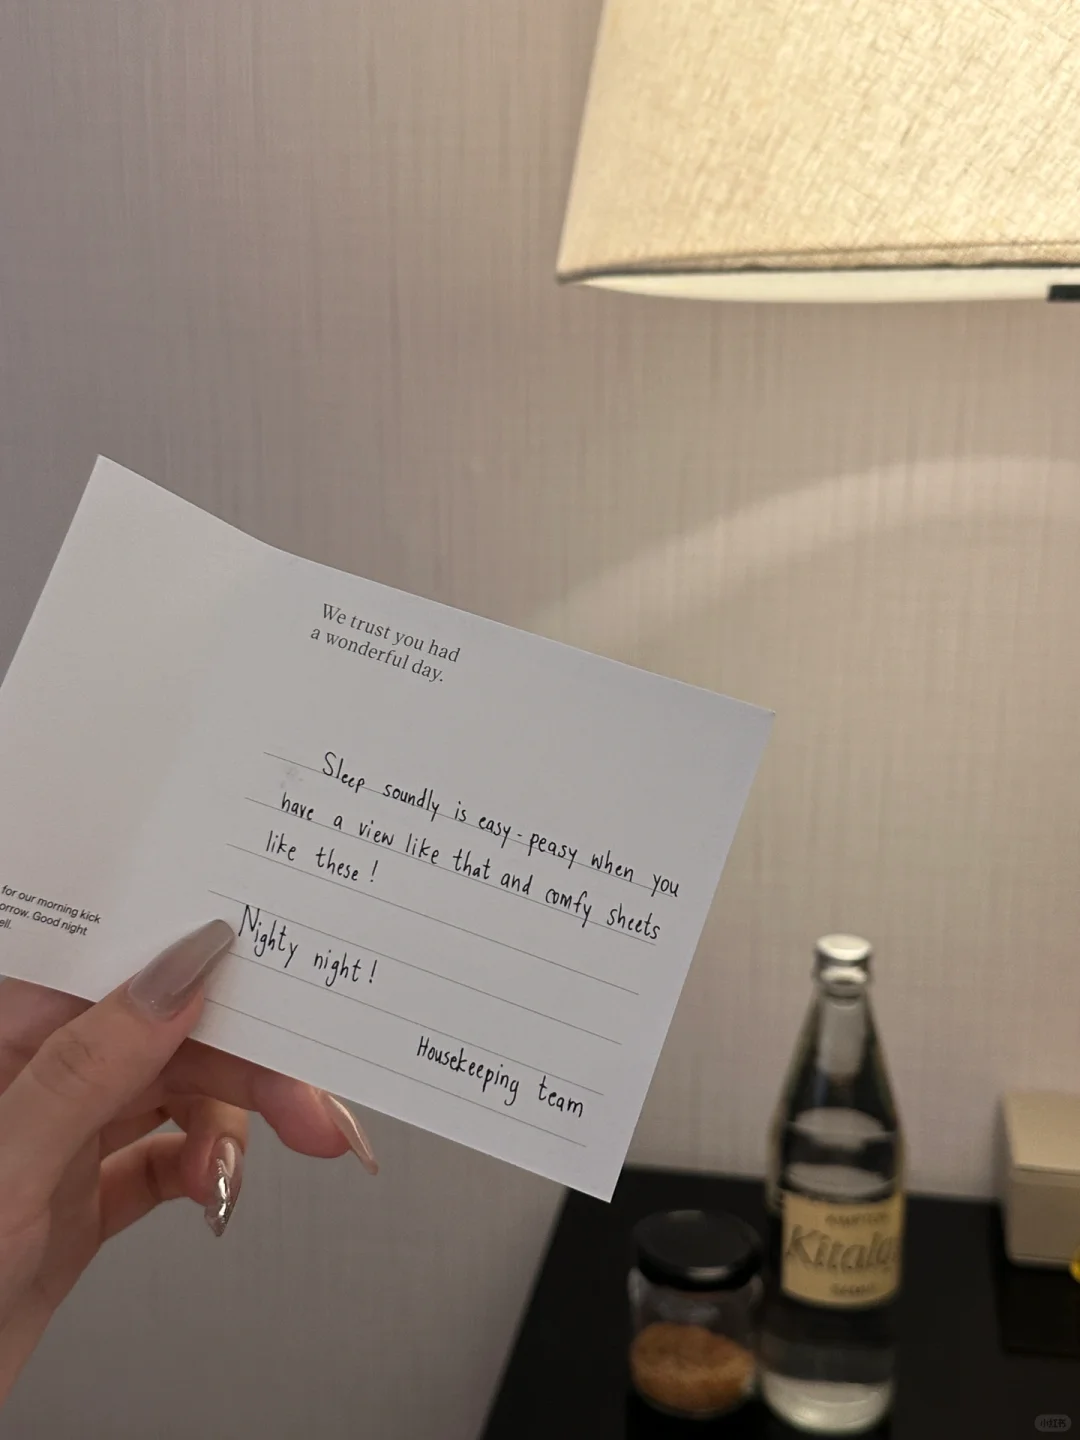 We trust you had
a wonderful day.
Sleep soundly is easy-peasy when you
have a view like that and comfy sheets
like these!
Nighty night!
Housekeeping team
for our morning kick
orrow. Good night
ell.
小红书